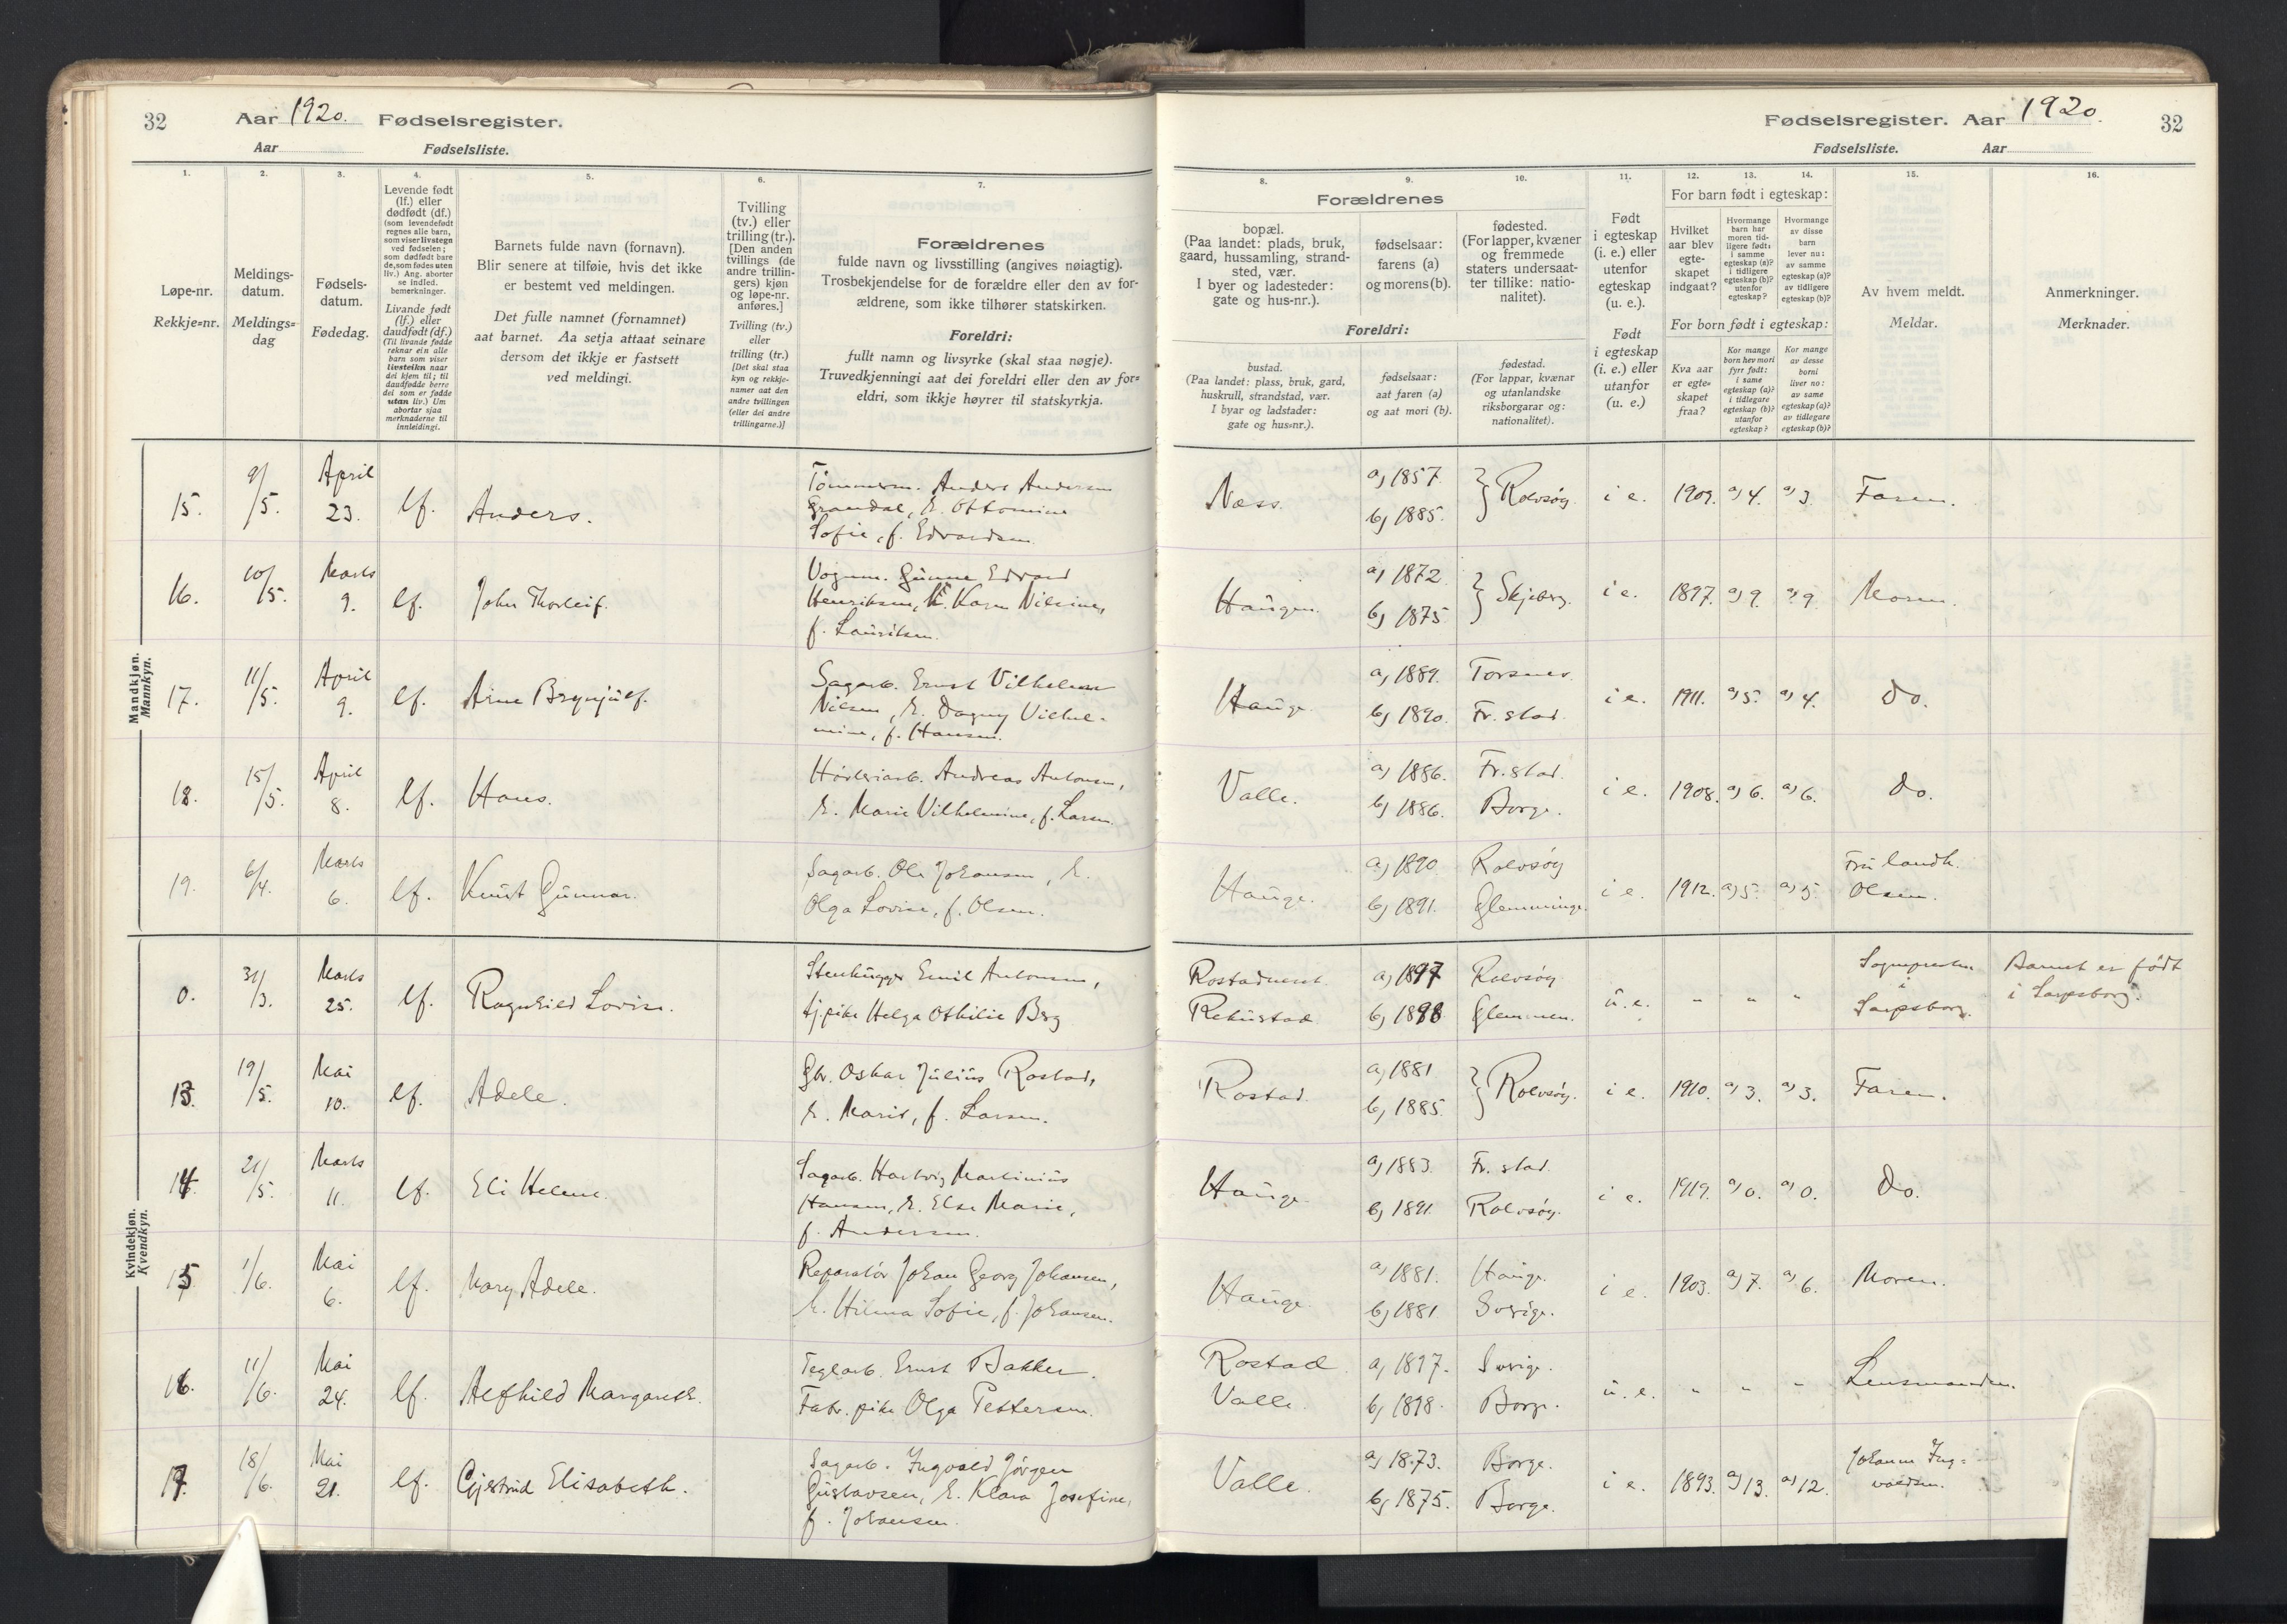 32 Aar 1920. Fødselsregister.
Aar Fødselsliste.
Fødselsregister. Aar 1920. 32
Fødselsliste. Aar
1. 2. 3. 4. 5. 6. 7.
Løpe-nr.
Rekkje=nr.
Meldings-
datum.
Meldings=
dag
Fødsels-
datum.
Fødedag.
Levende født
(lf.) eller
dødfødt (df.)
(som levendefødt
regnes alle barn,
som viser livstegn
ved fødselen;
som dødfødt bare
de, som fødes uten
liv.) Ang. aborter
se indled.
bemerkninger.
Livande født
(lf.) eller
daudfødt (df.)
(Til livande fødde
reknar ein alle
barn som viser
livsteikn naar
dei kjem til; til
daudfødde berre
dei som er fødde
utan liv.) Um
abortar sjaa
merknaderne til
innleidingi.
Barnets fulde navn (fornavn).
Blir senere at tilføie, hvis det ikke
er bestemt ved meldingen.
Det fulle namnet (fornamnet)
aat barnet. Aa setja attaat seinare
dersom det ikkje er fastsett
ved meldingi.
Tvilling
(tv.) eller
trilling (tr.).
[Den anden
tvillings (de
andre trillin-
gers) kjøn
og løpe-nr.
anføres.]
Tvilling (tv.)
eller
trilling (tr.)
[Det skal staa
kyn og rekkje-
numer aat den
andre tvillingen
(eller dei andre
trillingarne.)]
Forældrenes
fulde navn og livsstilling (angives nøiagtig).
Trosbekjendelse for de forældre eller den av for-
ældrene, som ikke tilhører statskirken.
Foreldri:
fullt namn og livsyrke (skal staa nøgje).
Truvedkjenningi aat dei foreldri eller den av for=
eldri, som ikkje høyrer til statskyrkja.
8. 9. 10. 11. 12. 13. 14. 15. 16.
Forældrenes
bopæl.
(Paa landet: plads, bruk,
gaard, hussamling, strand-
sted, vær.
I byer og ladesteder:
gate og hus-nr.).
fødselsaar:
farens (a)
og morens (b).
fødested.
(For lapper, kvæner
og fremmede
staters undersaat-
ter tillike: natio-
nalitet).
Foreldri:
bustad.
(Paa landet: plass, bruk, gard,
huskrull, strandstad, vær.
I byar og ladstader:
gate og hus=nr.).
fødselsaar:
aat faren (a)
og aat mori (b).
fødestad.
(For lappar, kvænar
og utanlandske
riksborgarar og:
nationalitet).
Født
i egteskap
(i. e.) eller
utenfor
egteskap
(u. e.).
Født
i egteskap
(i. e.) eller
utanfor
(u. e.)
For barn født i egteskap:
Hvilket
aar blev
egte-
skapet
indgaat?
Hvormange
barn har
moren tid-
ligere født:
i samme
egteskap (a)?
i tidligere
egteskap (b)?
utenfor
egteskap?
Hvormange
av disse
barn
lever nu:
av samme
egteskap (a)?
av tidligere
egteskap (b)?
For born født i egteskap:
Kva aar
er egte=
skapet
fraa?
Kor mange
born hev mori
fyrr født:
i same
egteskap (a)?
i tidlegare
egteskap (b)?
utanfor
egteskap?
Kor mange
av desse
borni
liver no:
av same
egteskap (a)?
av tidlegare
egteskap (b)?
Av hvem meldt.
Meldar.
Anmerkninger.
Merknader.
Mandkjøn.
Mannkyn.
15. 9/5. April 23. lf. Anders.
Tømmerm. Anders Andersen
Grøndal, h. Ottomine
Sofie, f. Edvardsen.
Næss. a) 1857. b) 1885. } Rolvsøy. i e. 1909. a) 4. a) 3. Faren.
16. 10/5. Marts 9. lf. John Thorleif.
Vognm. Gunne Edvard
Henriksen, h. Karen Nilsine,
f. Lauritsen.
Haugen. a) 1872. b) 1875. } Skjeberg. i e. 1897. a) 9. a) 9. Moren.
17. 11/5. April 9. lf. Arne Brynjulf.
Sagarb. Ernst Vilhelm
Nilsen, h. Dagny Vilhel-
mine, f. Hansen.
Hauge. a) 1889. Torsnes. b) 1890. Fr.stad. i e. 1911. a) 5. a) 4. Do.
18. 15/5. April 8. lf. Hans.
Høvleriarb. Andreas Antonsen,
h. Marie Vilhelmine, f. Larsen.
Valle. a) 1886. Fr.stad. b) 1886. Borge. i e. 1908. a) 6. a) 6. Do.
19. 6/4. Marts 6. lf. Knut Gunnar.
Sagarb. Ole Johansen, h.
Olga Lovise, f. Olsen.
Hauge. a) 1890. Rolvsøy b) 1891. Glemminge. i e. 1912. a) 5. a) 5. Fru landh.
Olsen.
Kvindekjøn.
Kvendkyn.
0. 31/3. Marts 25. lf. Ragnhild Lovise.
Stenhugger Emil Antonsen,
tj.pike Helga Othilie Berg
Rostadneset. a) 1897 Rolvsøy
Rekustad b) 1898 Glemmen. u. e. " " " Sognepresten
i
Sarpsborg. Barnet er født
i Sarpsborg.
13. 19/5. Mai 10. lf. Adele.
Gbr. Oskar Julius Rostad,
h. Marit, f. Larsen.
Rostad. a) 1881 b) 1885. } Rolvsøy. i e. 1910. a) 3. a) 3. Faren.
14. 21/5. Marts 11. lf. Eli Helene.
Sagarb. Hartvig Martinius
Hansen, h. Else Marie,
f. Andersen.
Hauge. a) 1883. Fr.stad. b) 1891. Rolvsøy. i e. 1919. a) 0. a) 0. Do.
15 1/6. Mai 6. lf. Mary Adele.
Reparatør Johan Georg Johansen,
h. Hilma Sofie, f. Johansen.
Hauge. a) 1881. Hauge. b) 1881 Sverige. i e. 1903. a) 7. a) 6. Moren.
16. 11/6. Mai 24. lf. Alfhild Margareth.
Teglarb. Ernst Bakken.
Fabr. pike Olga Pettersen.
Rostad a) 1897. Sverige.
Valle. b) 1898. Borge. u. e. " " " Lensmanden.
17. 18/6. Mai 21. lf. Gjertrud Elisabeth.
Sagarb. Ingvald Jørgen
Gustavsen, h. Klara Josefine,
f. Johansen.
Valle. a) 1873. Borge. b) 1875. Borge. i e. 1893. a) 13. a) 12. Johanne Ing=
valdsen.